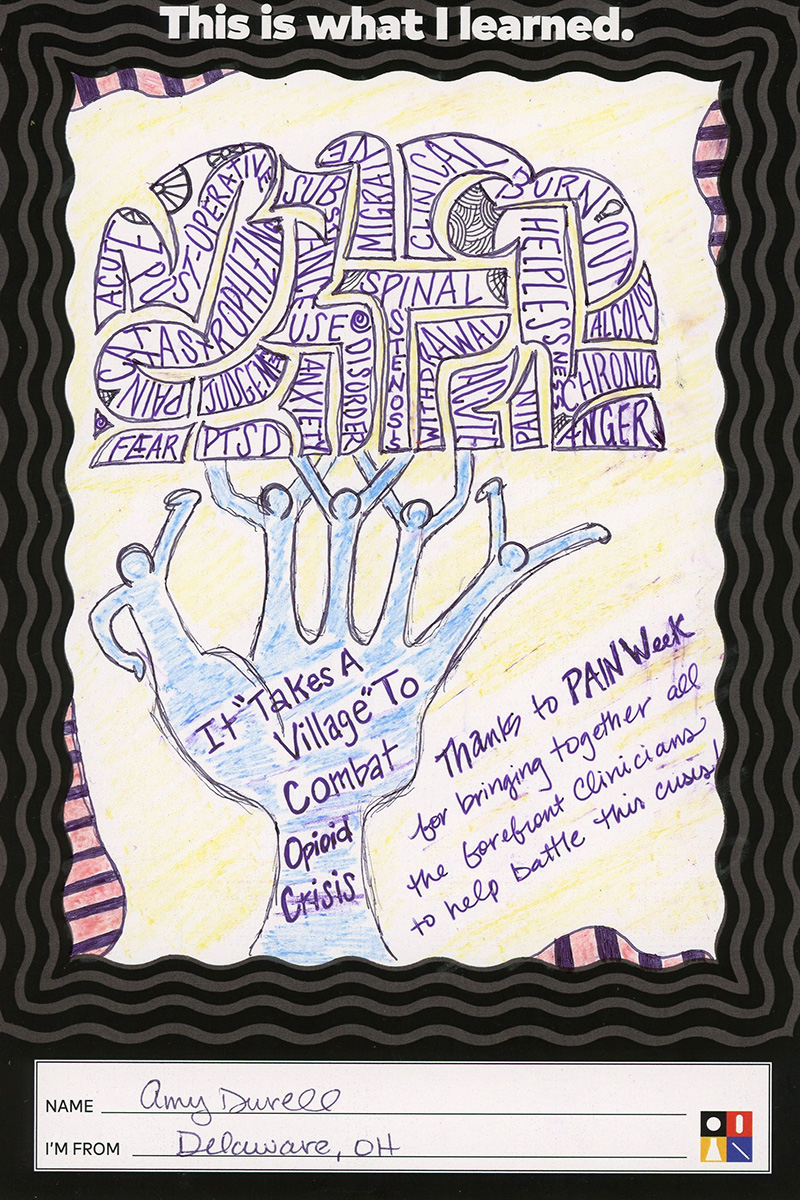 This is what I learned.
ACUTE
POST-OPERATIVE
SUBSTANCE
USE
DISORDER
MIGRAINE
CLINICAL
BURNOUT
CATASTROPHIZING
SPINAL
STENOSIS
HELPLESSNESS
ALCOHOL
PAIN
JUDGEMENT
ANXIETY
WITHDRAWAL
PAIN
CHRONIC
FEAR
PTSD
ANGER
It "Takes A
Village" To
Combat
Opioid
Crisis
Thanks to PAINWeek
for bringing together all
the forefront Clinicians
to help battle this crisis!
NAME Amy Durell
I'M FROM Delaware, OH